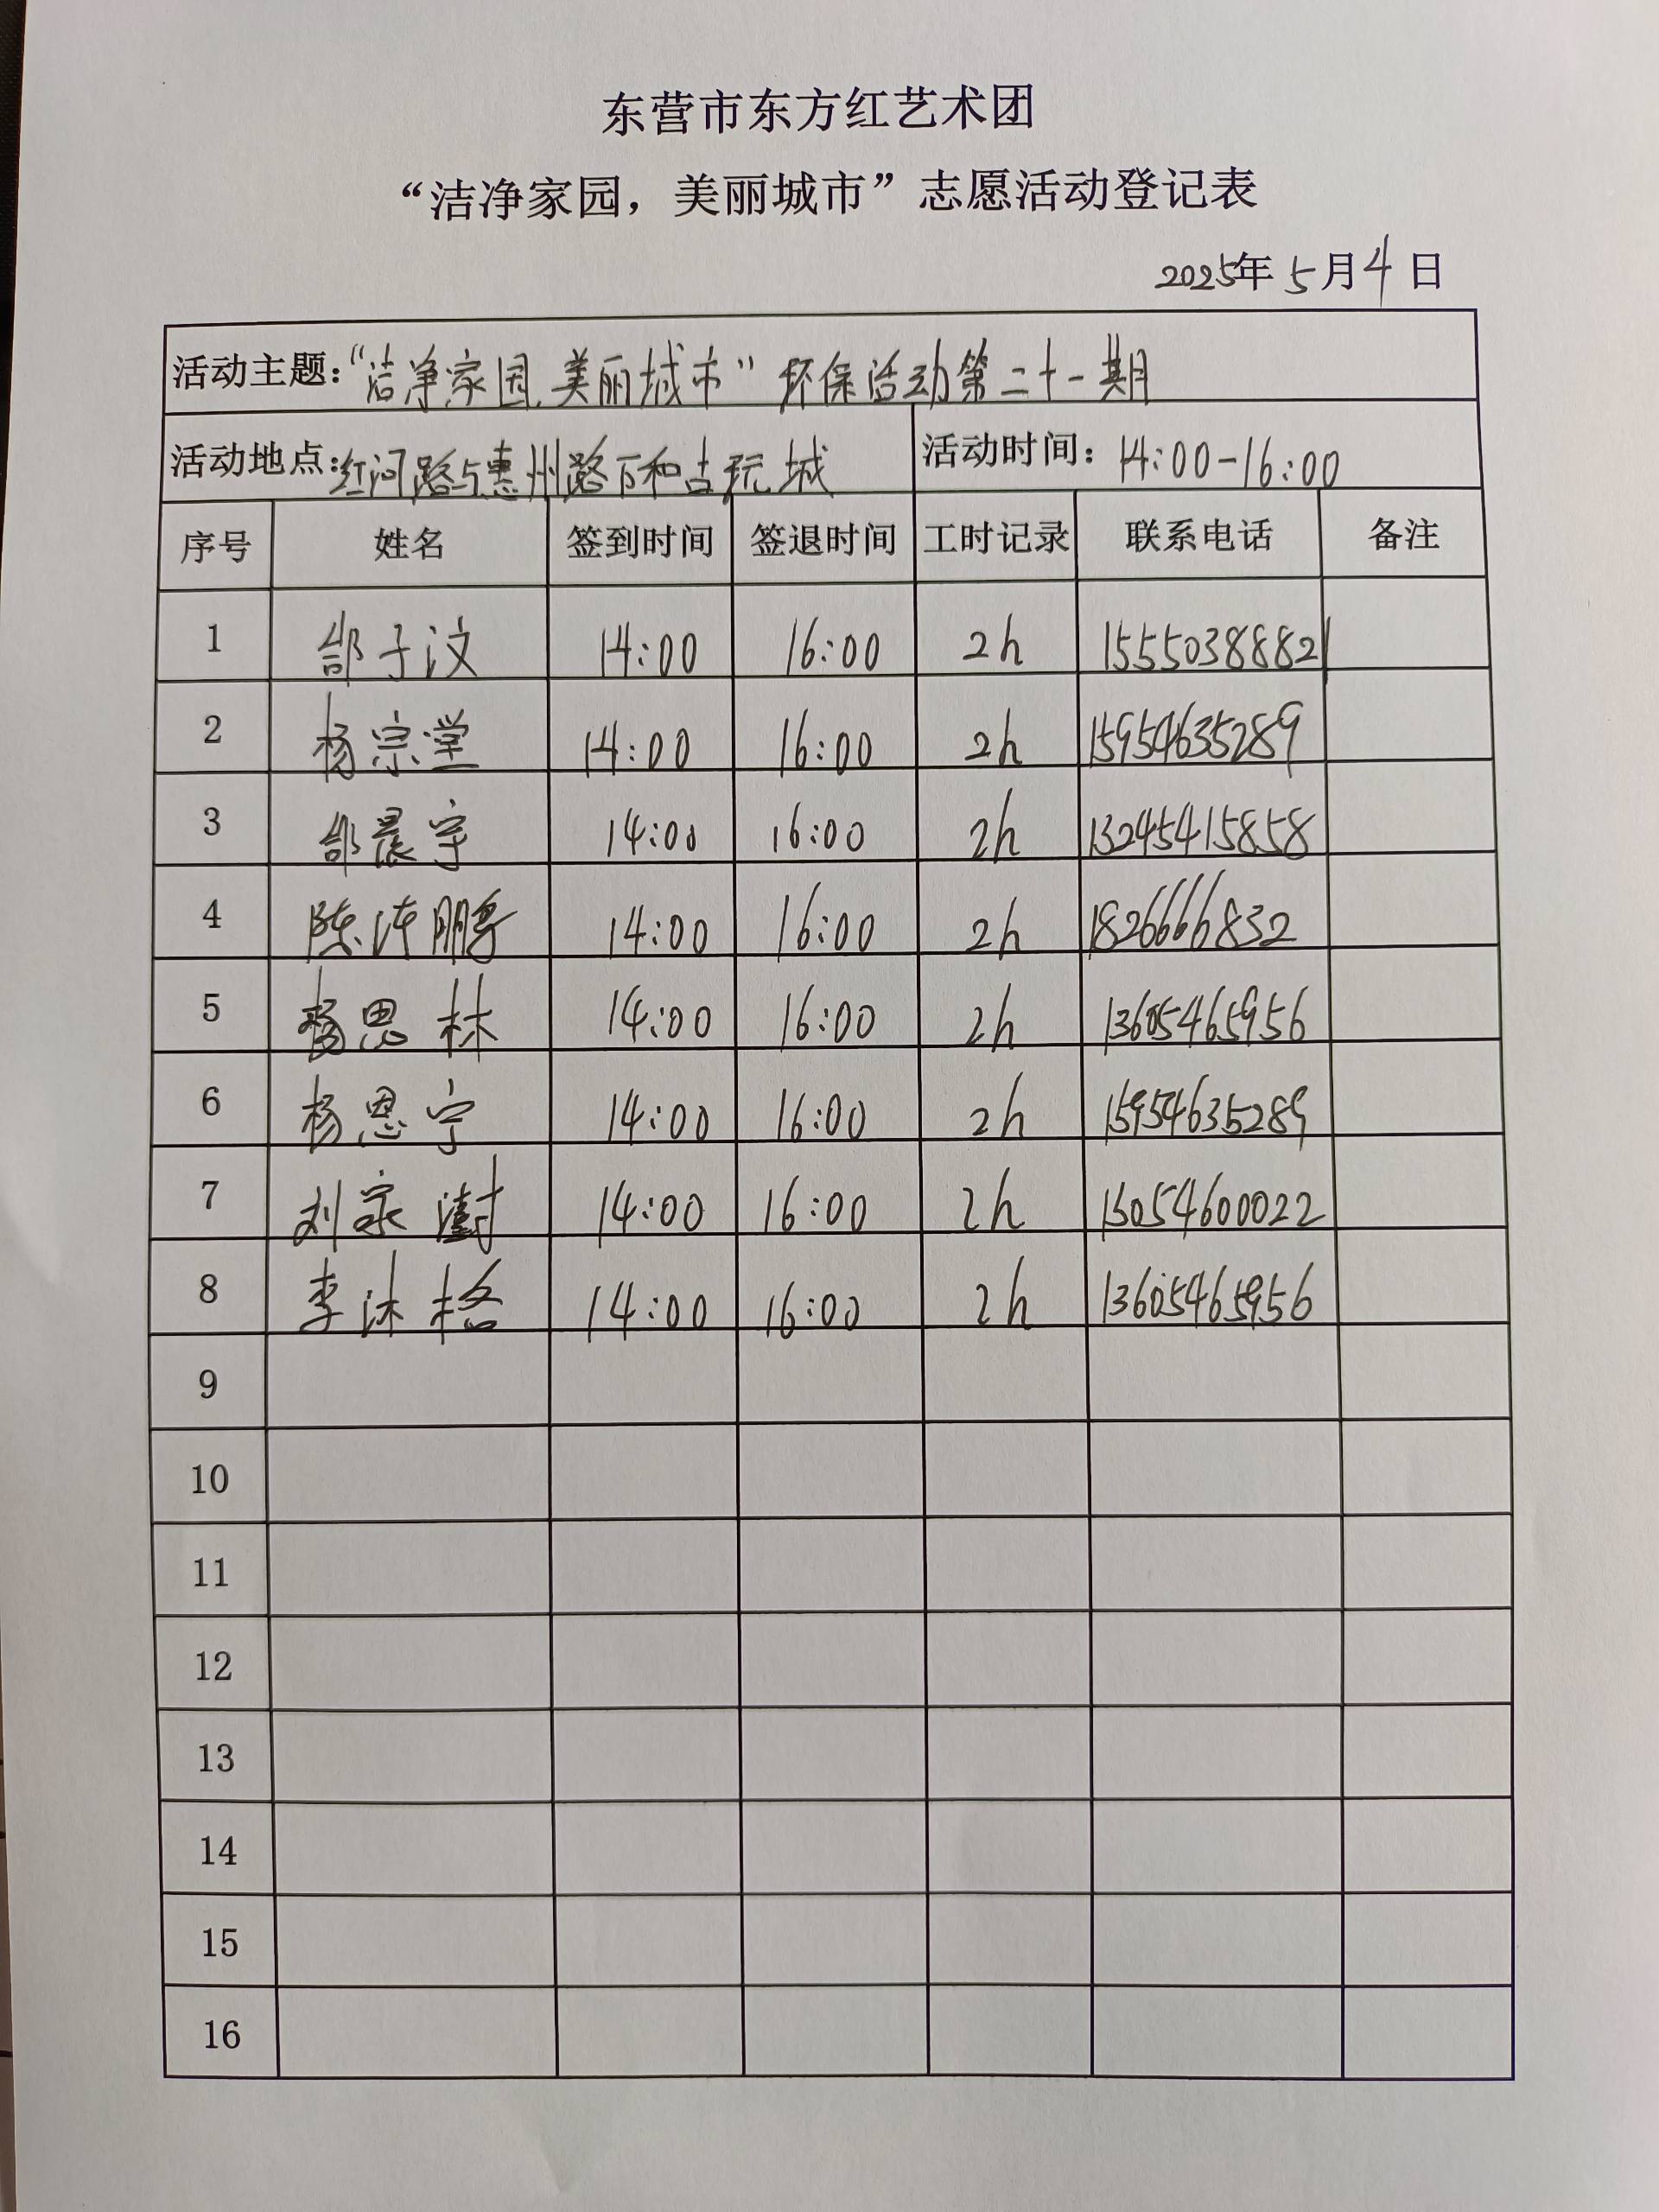 东营市东方红艺术团
“洁净家园，美丽城市”志愿活动登记表
2025年5月4日
活动主题：“洁净家园，美丽城市”环保活动第二十一期
活动地点：红河路与惠州路万和古玩城 活动时间：14:00-16:00
序号 姓名 签到时间 签退时间 工时记录 联系电话 备注
1 郜子汶 14:00 16:00 2h 15550388821
2 杨宗堂 14:00 16:00 2h 15954635289
3 郜晨宇 14:00 16:00 2h 13245415858
4 陈 14:00 16:00 2h 1826666832
5 杨思林 14:00 16:00 2h 13605465956
6 杨恩宁 14:00 16:00 2h 15954635289
7 刘家澍 14:00 16:00 2h 13054600022
8 李沐格 14:00 16:00 2h 13605465956
9
10
11
12
13
14
15
16